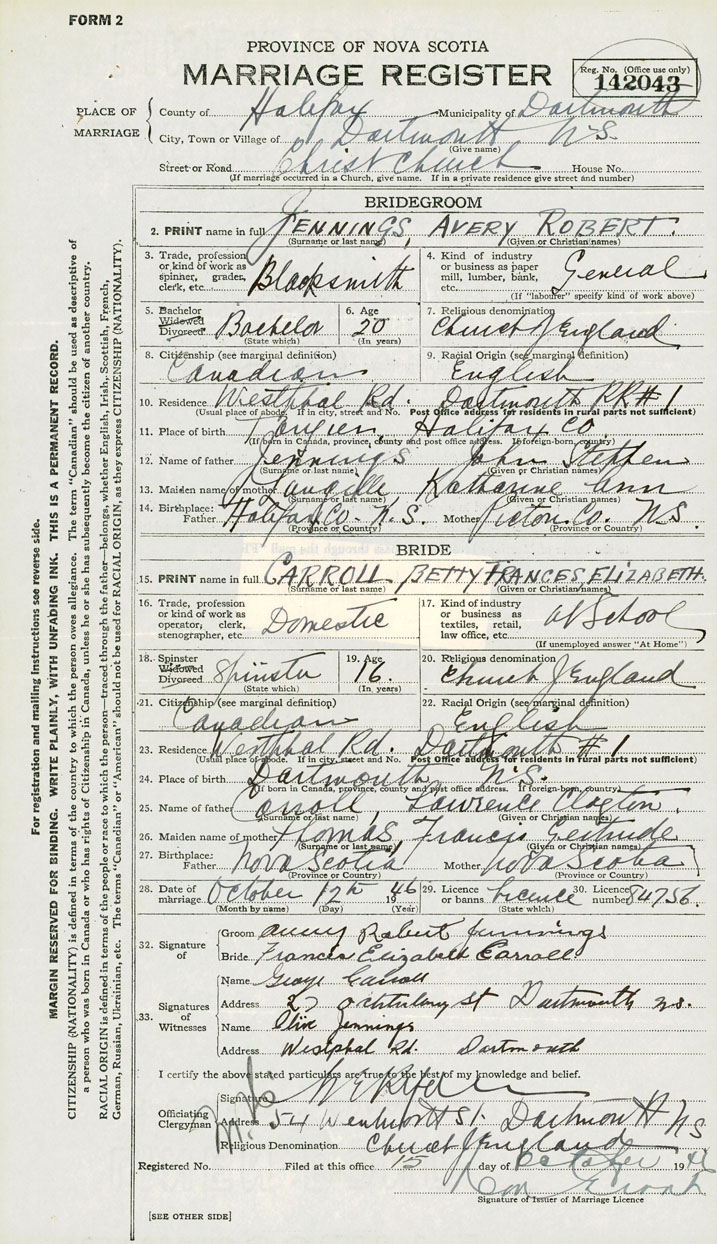 FORM 2
PROVINCE OF NOVA SCOTIA
MARRIAGE REGISTER
Reg. No. (Office use only)
142043
PLACE OF MARRIAGE
County of Halifax Municipality of Dartmouth
City, Town or Village of Dartmouth N.S.
(Give name)
Street or Road Christ Church House No.
(If marriage occurred in a Church, give name. If in a private residence give street and number)
BRIDEGROOM
2. PRINT name in full JENNINGS, AVERY ROBERT.
(Surname or last name) (Given or Christian names)
3. Trade, profession or kind of work as spinner, grader, clerk, etc. Blacksmith
4. Kind of industry or business as paper mill, lumber, bank, etc. General
(If "labourer" specify kind of work above)
5. Bachelor Widowed Divorced Bachelor
(State which)
6. Age 20
(In years)
7. Religious denomination
Church of England
8. Citizenship (see marginal definition)
Canadian
9. Racial Origin (see marginal definition)
English
10. Residence Westphal Rd. Dartmouth RR#1
(Usual place of abode. If in city, street and No. Post Office address for residents in rural parts not sufficient)
11. Place of birth Tangier, Halifax Co.
(If born in Canada, province, county and post office address. If foreign-born, country)
12. Name of father Jennings John Stephen
(Surname or last name) (Given or Christian names)
13. Maiden name of mother Langille Katharine Ann
(Surname or last name) (Given or Christian names)
14. Birthplace: Father Halifax Co. N.S. Mother Pictou Co. N.S.
(Province or Country) (Province or Country)
BRIDE
15. PRINT name in full CARROLL BETTY FRANCES, ELIZABETH.
(Surname or last name) (Given or Christian names)
16. Trade, profession or kind of work as operator, clerk, stenographer, etc. Domestic
17. Kind of industry or business as textiles, retail, law office, etc. at School
(If unemployed answer "At Home")
18. Spinster Widowed Divorced Spinster
(State which)
19. Age 16.
(In years)
20. Religious denomination
Church of England
21. Citizenship (see marginal definition)
Canadian
22. Racial Origin (see marginal definition)
English
23. Residence Westphal Rd. Dartmouth #1
(Usual place of abode. If in city, street and No. Post Office address for residents in rural parts not sufficient)
24. Place of birth Dartmouth N.S.
(If born in Canada, province, county and post office address. If foreign-born, country)
25. Name of father Carroll Lawrence Clayton
(Surname or last name) (Given or Christian names)
26. Maiden name of mother Thomas, Francis Gertrude
(Surname or last name) (Given or Christian names)
27. Birthplace: Father Nova Scotia Mother Nova Scotia
(Province or Country) (Province or Country)
28. Date of marriage October 12th 1946
(Month by name) (Day) (Year)
29. Licence or banns Licence
(State which)
30. Licence number 84756.
32. Signature of
Groom Avery Robert Jennings
Bride Frances Elizabeth Carroll
33. Signatures of Witnesses
Name George Carroll
Address 27 Ochterloney St Dartmouth N.S.
Name Olive Jennings
Address Westphal Rd. Dartmouth
I certify the above stated particulars are true to the best of my knowledge and belief.
Officiating Clergyman
Signature
Address 54 Wentworth St. Dartmouth NS
Religious Denomination Church of England
Registered No. Filed at this office 15 day of October 1946
Signature of Issuer of Marriage Licence
[SEE OTHER SIDE]
For registration and mailing instructions see reverse side.
MARGIN RESERVED FOR BINDING. WRITE PLAINLY, WITH UNFADING INK. THIS IS A PERMANENT RECORD.
CITIZENSHIP (NATIONALITY) is defined in terms of the country to which the person owes allegiance. The term "Canadian" should be used as descriptive of
a person who was born in Canada or who has rights of Citizenship in Canada, unless he or she has subsequently become the citizen of another country.
RACIAL ORIGIN is defined in terms of the people or race to which the person—traced through the father—belongs, whether English, Irish, Scottish, French,
German, Russian, Ukrainian, etc. The terms "Canadian" or "American" should not be used for RACIAL ORIGIN, as they express CITIZENSHIP (NATIONALITY).